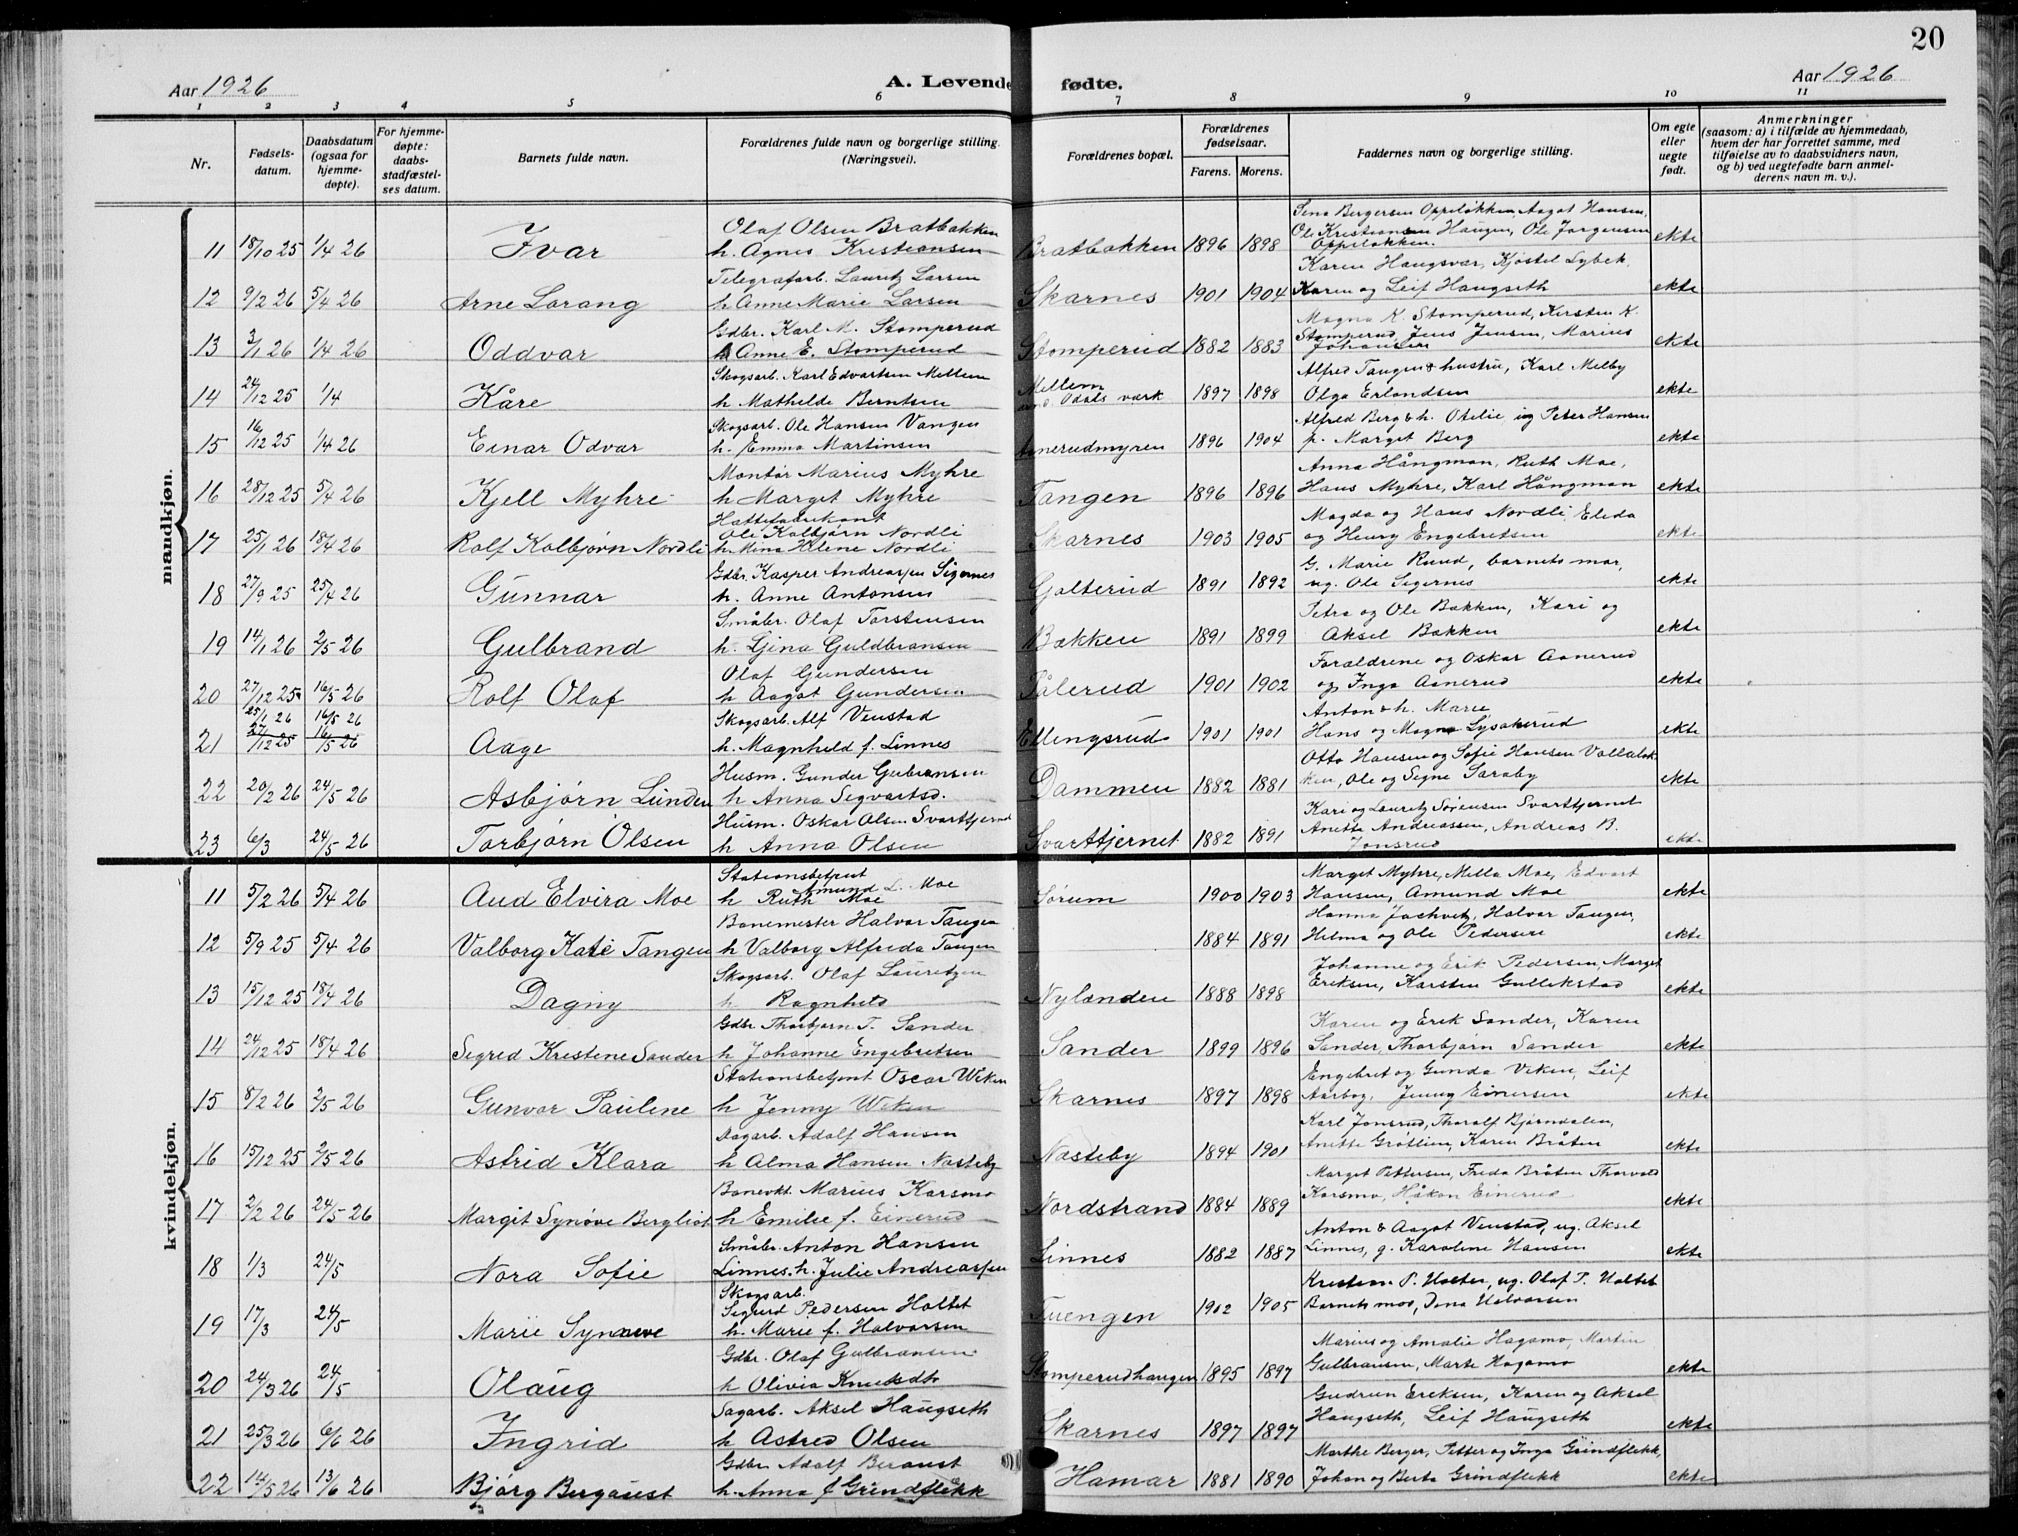 20
Aar 1926 A. Levende fødte. Aar 1926
1 2 3 4 5 6 7 8 9 10 11
Nr. Fødsels-datum. Daabsdatum (ogsaa for hjemme-døpte). For hjemme-døpte: daabs-stadfæstel-ses datum. Barnets fulde navn. Forældrenes fulde navn og borgerlige stilling. (Næringsvei). Forældrenes bopæl. Forældrenes fødselsaar. Farens. Morens. Faddernes navn og borgerlige stilling. Om egte eller uegte født. Anmerkninger (saasom: a) i tilfælde av hjemmedaab, hvem der har forrettet samme, med tilføielse av to daabsvidners navn, og b) ved uegtefødte barn anmel-derens navn m. v.).
mandkjøn.
Olaf Olsen Bratbakken Sena Bergersen Oppiløkken, Aagot Hansen,
11 18/10 25 1/4 26 Ivar h. Agnes Kristiansen Bratbakken 1896 1898 Ole Kristiansen Haugen, Ole Jørgensen Oppiløkken. ekte
Telegrafarb. Lauritz Larsen Karen Haugsvær, Kjøstel Lybek
12 9/2 26 5/4 26 Arne Lorang h. Anne Marie Larsen Skarnes 1901 1904 Karen og Leif Haugseth ekte
Gdbr. Karl M. Stomperud Magna K. Stomperud, Kirsten K.
13 3/1 26 1/4 26 Oddvar h Anne E. Stomperud Stomperud 1882 1883 Stomperud, Jens Jensen, Marius Johansen ekte
Skogsarb. Karl Edvartsen Mellem Alfred Tangen & hustru, Karl Melby
14 24/12 25 1/4 Kåre h Mathilde Berntsen Mellem Odals værk 1897 1898 Olga Erlandsen ekte
Skogsarb. Ole Hansen Vangen Alfred Berg & h. Otelie, ug Peter Hansen
15 16/12 25 1/4 26 Einar Odvar h. Emma Martinsen Aanerudmyren 1896 1904 p. Marget Berg ekte
Montør Marius Myhre Anna Hångman, Ruth Moe,
16 28/12 25 5/4 26 Kjell Myhre h Marget Myhre Tangen 1896 1896 Hans Myhre, Karl Hångman ekte
Hattefabrikant Ole Kolbjørn Nordli Magda og Hans Nordli, Elida
17 25/1 26 18/4 26 Rolf Kolbjørn Nordli h. Mina Helene Nordli Skarnes 1903 1905 og Henry Engebretsen ekte
Gdbr. Kasper Andreassen Sigernes G. Marie Ruud, barnets mor,
18 27/9 25 25/4 26 Gunnar h. Anne Antonsen Galterud 1891 1892 ug. Ole Sigernes ekte
Småbr. Olaf Torstensen Petra og Ole Bakken, Kari og
19 14/1 26 2/5 26 Gulbrand h. Gina Guldbransen Bakken 1891 1899 Aksel Bakken ekte
Olaf Gundersen Forældrene og Oskar Aanerud
20 27/12 25 16/5 26 Rolf Olaf h Aagot Gundersen Pålerud 1901 1902 og Inga Aanerud ekte
25/1 26 16/5 26 Skogsarb. Alf Venstad Anton & h. Marie
21 27/12 25 16/5 26 Aage h. Magnhild f. Linnes Ellingsrud 1901 1901 Hans og Magna Lysakerud ekte
Husm. Gunder Gulbransen Otto Hansen og Sofie Hansen Vallaløk-
22 20/2 26 24/5 26 Asbjørn Lunden h Anna Segvartsd. Dammen 1882 1881 ken, Ole og Signe Saraby ekte
Husm. Oskar Olsen Svarttjernet Kari og Lauritz Sørensen Svarttjernet
23 6/3 24/5 26 Torbjørn Olsen h Anna Olsen Svarttjernet 1882 1891 Anette Andreassen, Andreas B. Jonsrud ekte
kvindekjøn.
Stationsbetjent Amund L. Moe Marget Myhre, Milla Moe, Edvart
11 5/2 26 5/4 26 Aud Elvira Moe h Ruth Moe Sørum 1900 1903 Hansen, Amund Moe ekte
Banemester Halvor Tangen Hanna Jachvitz, Halvor Tangen,
12 5/9 25 5/4 26 Valborg Kate Tangen h Valborg Alfreda Tangen 1884 1891 Hilma og Ole Pedersen ekte
Skogsarb. Olaf Lauritzen Johanne og Erik Pedersen, Marget
13 15/12 25 18/4 26 Dagny h Ragnhild Nylænden 1888 1898 Eriksen, Karsten Gullikstad ekte
Gdbr Thorbjørn T. Sander Karen og Erik Sander, Karen
14 24/12 25 18/4 26 Segred Kristene Sander h Johanne Engebretsen Sander 1899 1896 Sander, Thorbjørn Sander ekte
Stationsbetjent Oscar Weken Engebret og Gunda Viken, Leif
15 8/2 26 2/5 26 Gunvor Paulene h Jenny Weken Skarnes 1897 1898 Aarbog, Jenny Einersen ekte
Dagarb. Adolf Hansen Karl Jonsrud, Thoralf Bjørndalen,
16 15/12 25 2/5 26 Astrid Klara h Alma Hansen Næsteby Næsteby 1894 1901 Anette Grøtlien, Karen Bråten ekte
Banevkt. Marius Karsmo Marget Pettersen, Freda Bråten Thorvald
17 2/2 26 24/5 26 Margit Synøve Bergliot h Emilie f. Einerud Nordstrand 1884 1889 Karsmo, Håkon Einerud ekte
Småbr. Anton Hansen Anton & Aagot Venstad, ug. Aksel
18 1/3 24/5 Nora Sofie Linnes. h. Julie Andreassen Linnes 1882 1887 Linnes, g. Karoline Hansen ekte
Skogsarb. Sigurd Pedersen Holtet Kristian P. Holtet, ug. Olaf P. Holtet
19 17/3 24/5 Marie Synnøve h. Marie f. Halvorsen Tuengen 1902 1905 Barnets mor, Dena Halvorsen
Gdbr. Olaf Gulbransen Marius og Amalie Hagamo, Martin
20 24/3 26 24/5 Olaug h Olivia Knudsdtr Stomperudhaugen 1895 1897 Gulbransen, Marte Hagamo ekte
Sagarb. Aksel Haugseth Gudrun Eriksen, Karen og Aksel
21 25/3 26 6/6 26 Ingrid h Astred Olsen Skarnes 1897 1897 Haugseth, Leif Haugseth ekte
Gdbr Adolf Bergqust Marthe Berger, Petter og Inga Grindflekk,
22 14/5 26 13/6 26 Bjørg Bergquist h. Anna f Grindflekk Hamar 1881 1890 Johan og Berta Grindflekk ekte